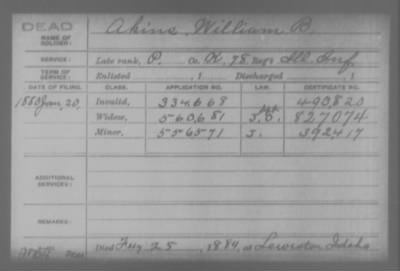 DEAD
NAME OF SOLDIER: Akins, William B.
SERVICE: Late rank, P. Co. K, 78 Reg't Ill. Inf.
TERM OF SERVICE: Enlisted , 1 Discharged , 1
DATE OF FILING. CLASS. APPLICATION NO. LAW. CERTIFICATE NO.
1880 Jan. 20. Invalid, 334668 490,820
Widow, 560,681 827074
Minor, 556571 392417
ADDITIONAL SERVICES:
REMARKS:
Died 25, 1884, at Lewiston Idaho